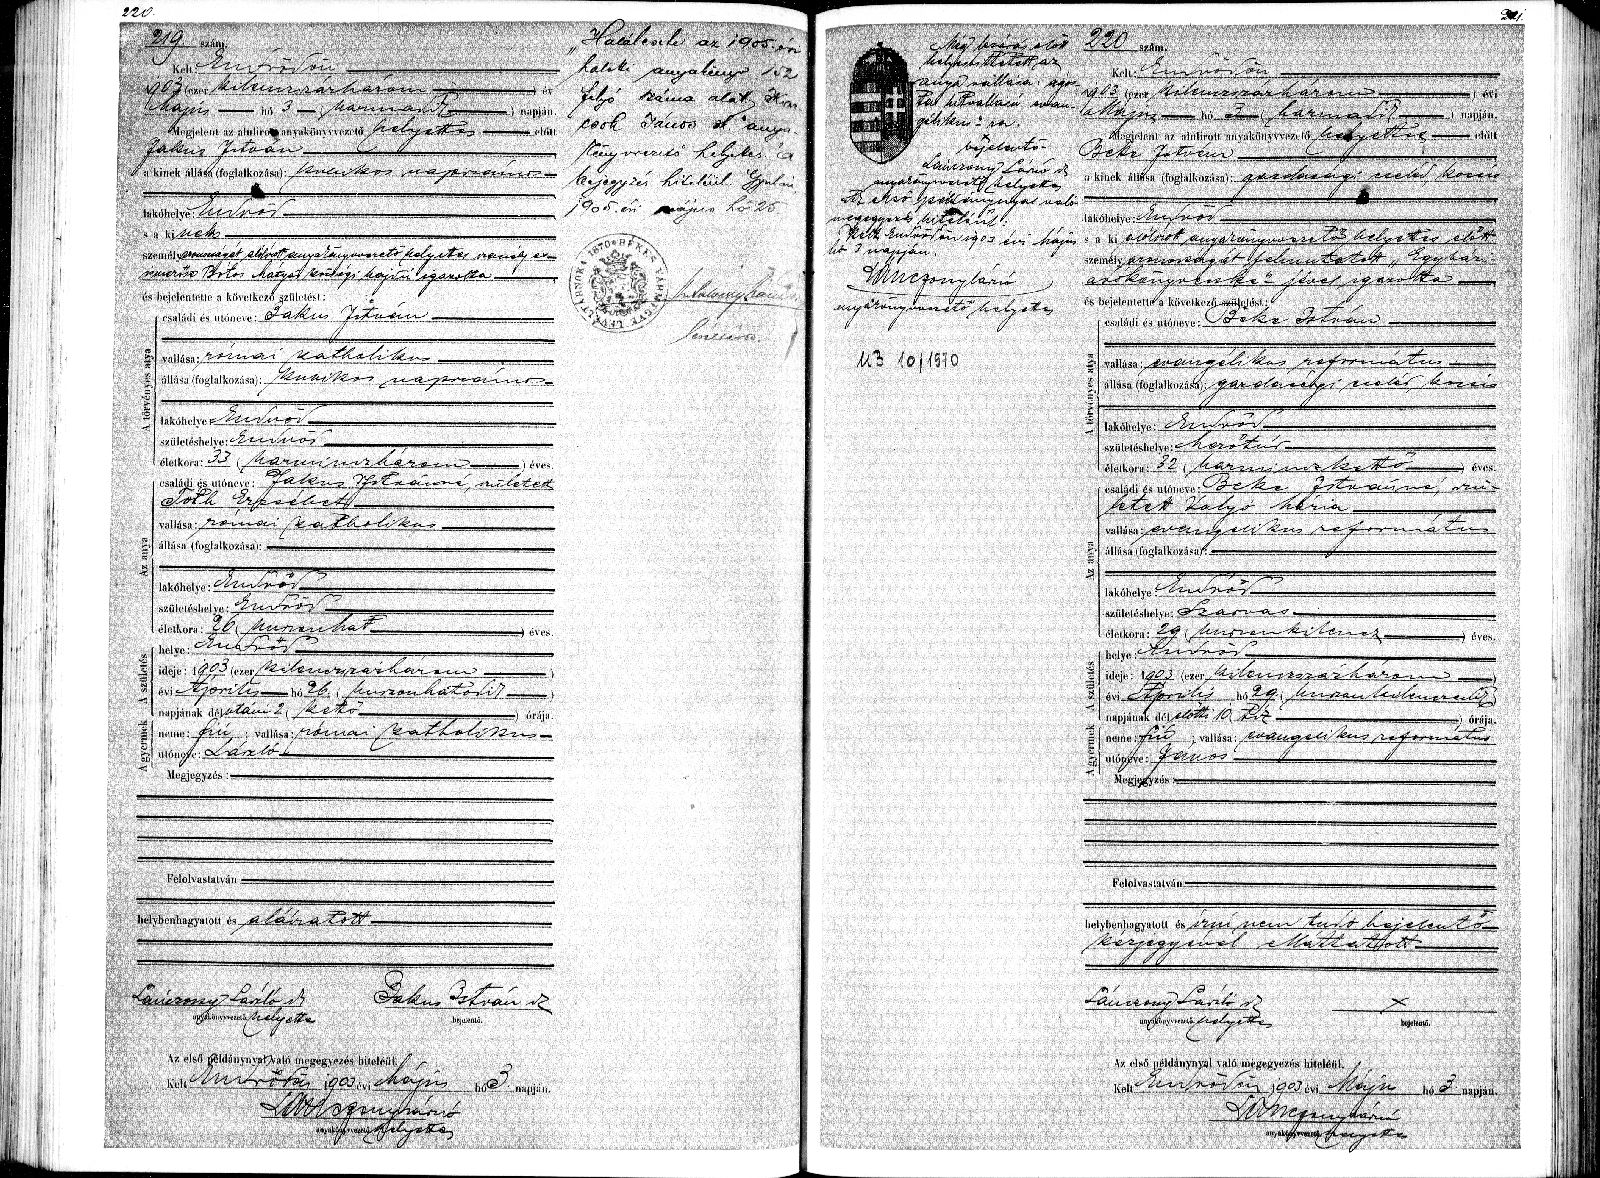 220.
219 szám.
Kelt: Endrődön
1903 (ezer kilenczszázhárom) évi
Május hó 3 (harmadik) napján.
Megjelent az alulirott anyakönyvvezető helyettes előtt
Jakus István
a kinek állása (foglalkozása): kubikos napszámos
lakóhelye: Endrőd
s a kinek
személyazonosságát alólírott anyakönyvvezető helyettes személyes
ismerőse Motos Mátyás községi hajdú igazolta
és bejelentette a következő születést:
A törvényes atya
családi és utóneve: Jakus István
vallása: római katholikus
állása (foglalkozása): kubikos napszámos
lakóhelye: Endrőd
születéshelye: Endrőd
életkora: 33 (harminczhárom) éves.
Az anya
családi és utóneve: Jakus Istvánné, született
Tóth Erzsébet
vallása: római katholikus
állása (foglalkozása):
lakóhelye: Endrőd
születéshelye: Endrőd
életkora: 26 (huszonhat) éves.
A születés
helye: Endrőd
ideje: 1903 (ezer kilenczszázhárom)
évi Április hó 26. (huszonhatodik)
napjának délutáni 2 (kettő) órája.
A gyermek
neme: fiú; vallása: római katholikus
utóneve: László
Megjegyzés:
Felolvastatván
helybenhagyatott és aláiratott
Lánczony László sk
anyakönyvvezető helyettes
Jakus István sk
bejelentő.
Az első példánynyal való megegyezés hiteléül.
Kelt Endrődön 1903 évi Május hó 3 napján.
Lánczony László
anyakönyvvezető helyettes
„Halálesete az 1905. évi
haláli anyakönyv 152
folyó száma alatt,
János sk anya-
könyvvezető helyettes" A
bejegyzés hiteléül. Gyulán,
1905. évi május hó 26
BÉKÉS VÁRMEGYE LEVÉLTÁRNOKA 1870
221.
220 szám.
Kelt: Endrődön
1903 (ezer kilenczszázhárom) évi
Május hó 3 (harmadik) napján.
Megjelent az alulirott anyakönyvvezető helyettes előtt
Beke István
a kinek állása (foglalkozása): gazdasági cseléd, kocsis
lakóhelye: Endrőd
s a ki alólírott anyakönyvvezető helyettes előtt
személyazonosságát felmutatott „Egyházi
esőkönyvecske" jével igazolta
és bejelentette a következő születést:
A törvényes atya
családi és utóneve: Beke István
vallása: evangélikus református
állása (foglalkozása): gazdasági cseléd, kocsis
lakóhelye: Endrőd
születéshelye: Mezőtúr
életkora: 32 (harminczkettő) éves.
Az anya
családi és utóneve: Beke Istvánné, szü-
letett Zólyó Mária
vallása: evangélikus református
állása (foglalkozása):
lakóhelye: Endrőd
születéshelye: Szarvas
életkora: 29 (huszonkilencz) éves.
A születés
helye: Endrőd
ideje: 1903 (ezer kilenczszázhárom)
évi Április hó 29. (huszonkilenczedik)
napjának délelőtti 10. tíz órája.
A gyermek
neme: fiú; vallása: evangélikus református
utóneve: János
Megjegyzés:
Felolvastatván
helybenhagyatott és írni nem tudó bejelentő
kézjegyével elláttatott
Lánczony László sk
anyakönyvvezető helyettes
x
bejelentő.
Az első példánynyal való megegyezés hiteléül.
Kelt Endrődön 1903 évi Május hó 3 napján.
Lánczony László
anyakönyvvezető helyettes
Még lezárás előtt
helyesbíttetett az
anya vallása: ágos-
tai hitvallású evan-
gélikus"-ra.
x
bejelentő
Lánczony László sk
anyakönyvvezető helyettes
Az első példánynyal való
megegyezés hiteléül.
Kelt Endrődön 1903 évi Május
hó 3 napján.
Lánczony László
anyakönyvvezető helyettes
M3 10/1970